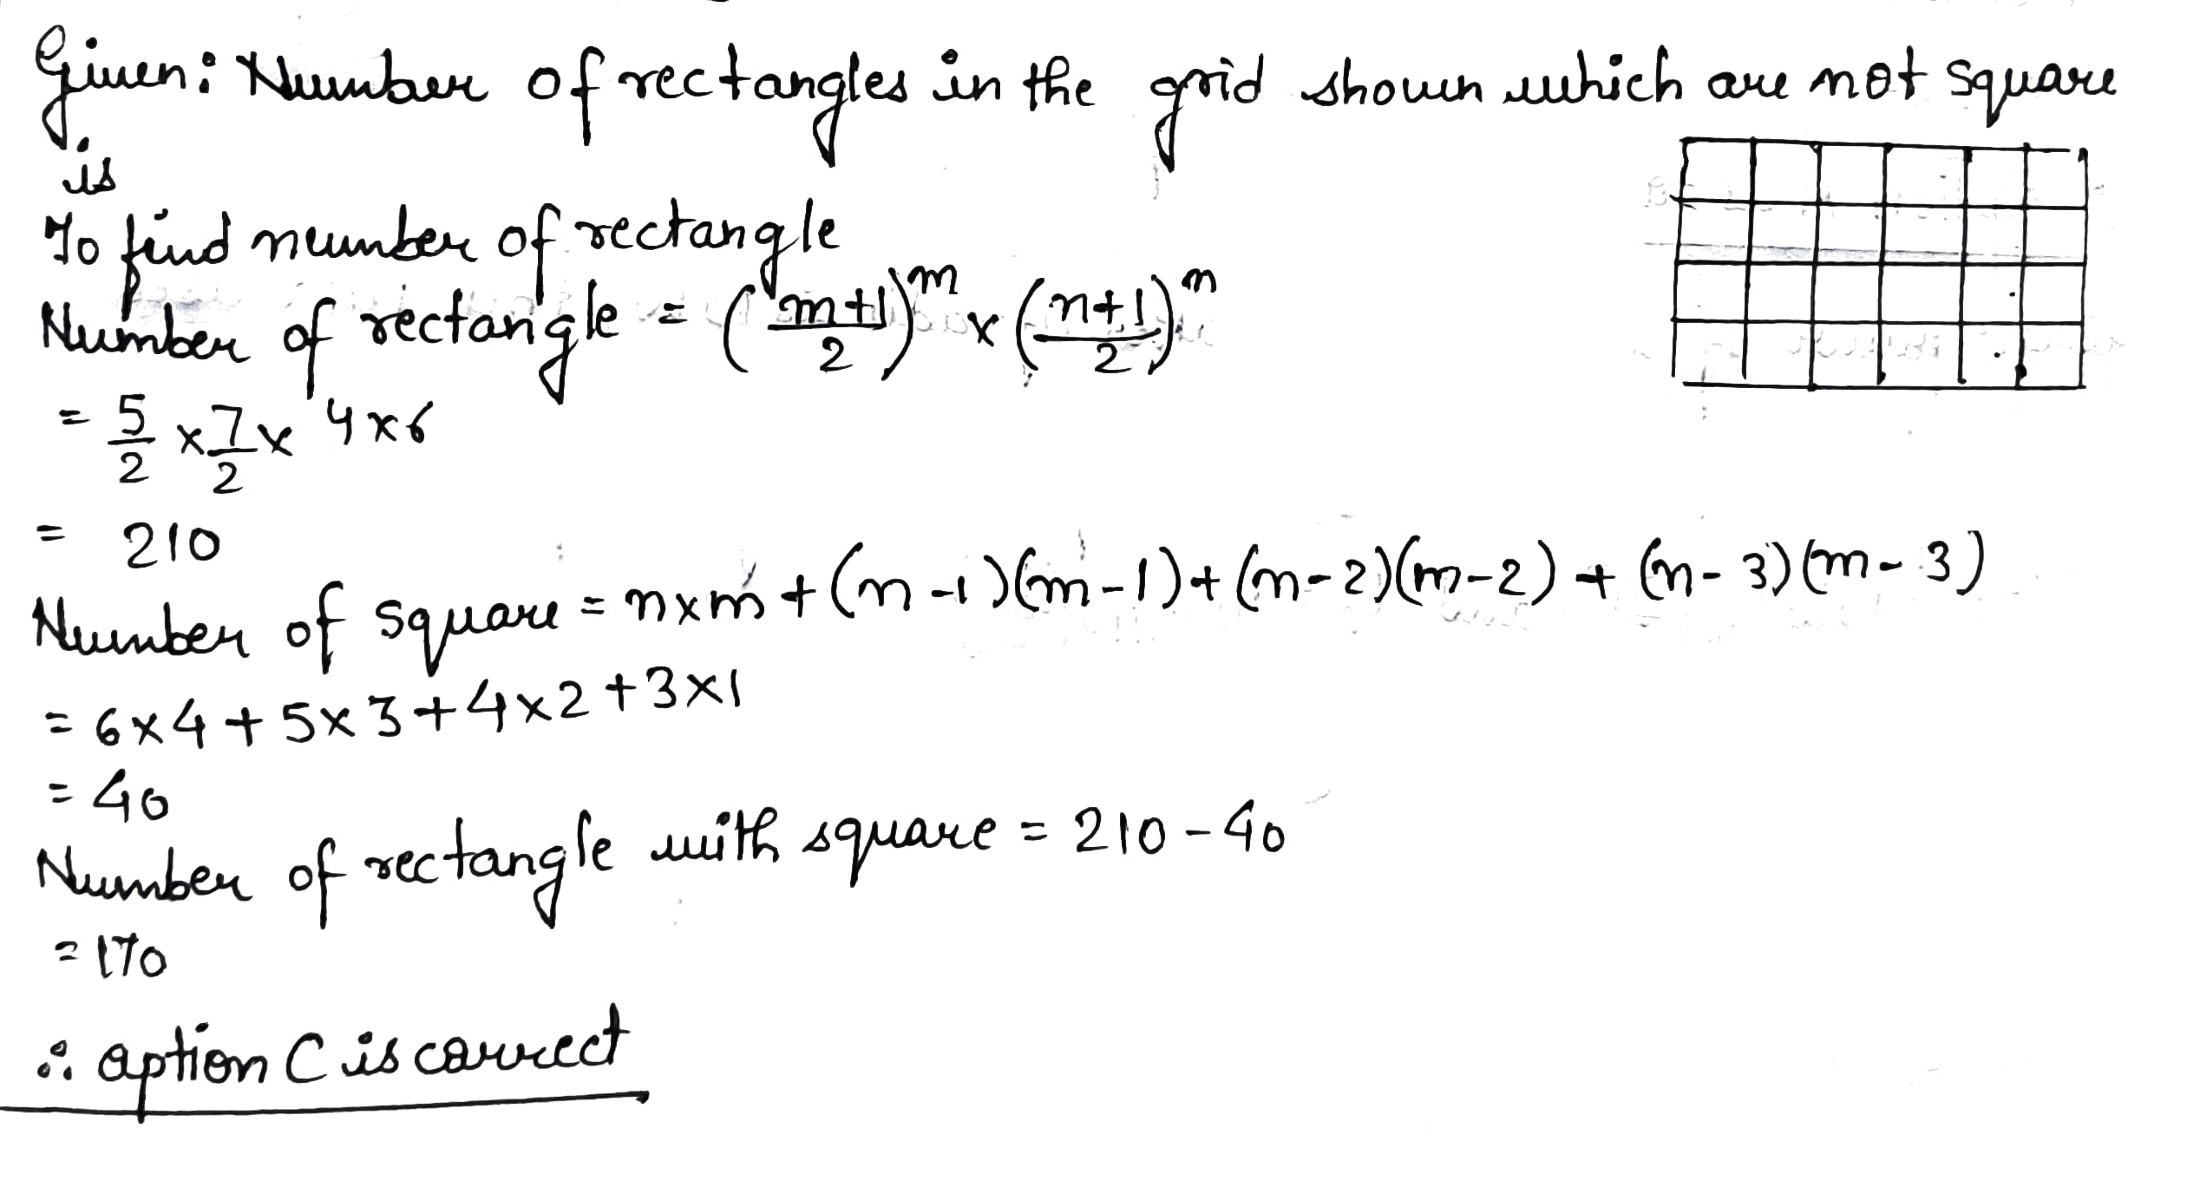 Given: Number of rectangles in the grid shown which are not square
is
To find number of rectangle
Number of rectangle = ((m+1)/2)^m × ((n+1)/2)^n
= 5/2 × 7/2 × 4×6
= 210
Number of square = n×m + (n-1)(m-1) + (n-2)(m-2) + (n-3)(m-3)
= 6×4 + 5×3 + 4×2 + 3×1
= 40
Number of rectangle with square = 210 - 40
= 170
∴ option C is correct